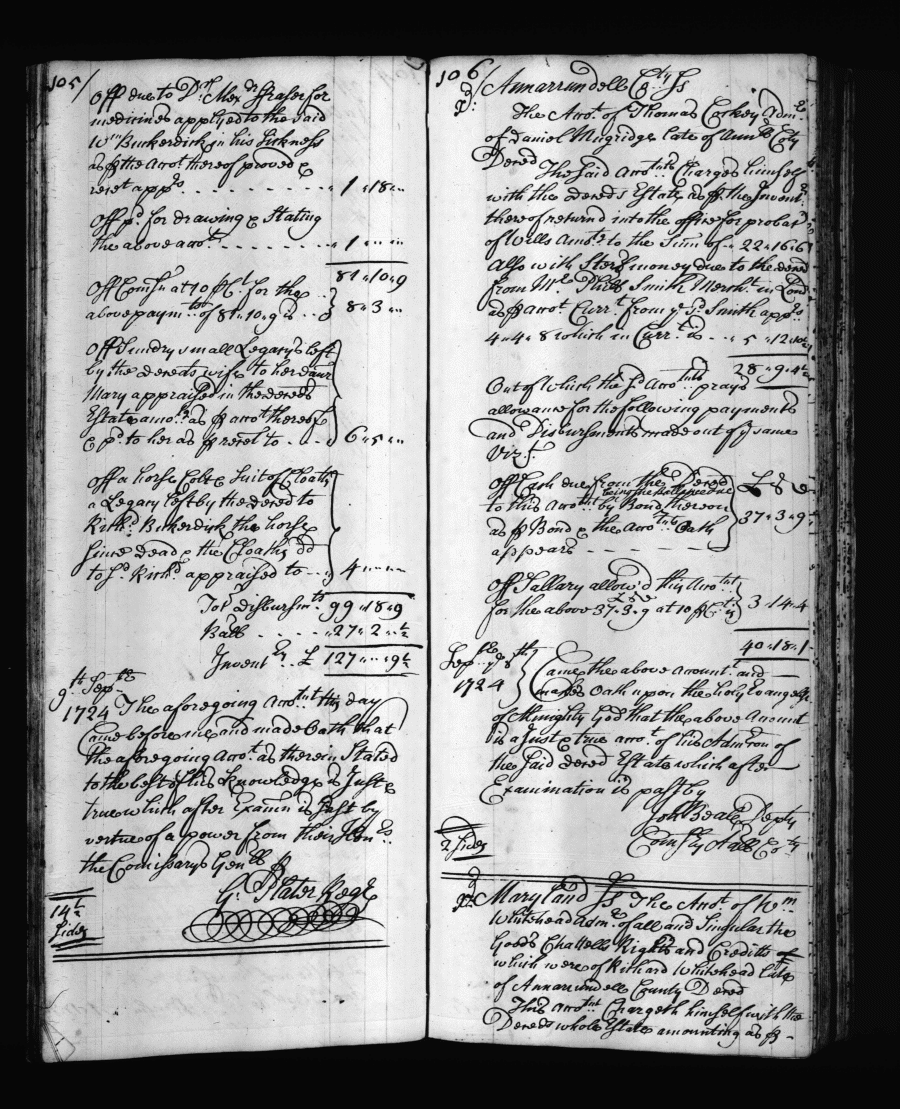 105/
Off due to Dr. Alexr Fraser for
medicines applyed to the said
Wm Bukerdick in his Sickness
as ꝑ the Accot thereof proved &
recet apprs . . . . . . . . . " 1 " 18 " "
Off pd. for drawing & Stating
the above accot . . . . . . . " 1 " " "
81 " 10 " 9
Off Comsn at 10 ꝑ Ct. for the
above paymts of 81 " 10 " 9 is . . 8 " 3 " "
Off Sundry small Legarys left
by the deceds wife to her daur
Mary appraised in the deceds
Estate amo. as ꝑ accot thereof
& pd. to her as ꝑ recet to . . . . 6 " 5 " "
Off a horse Colt & Suit of Cloaths
a Legary left by the deced to
Richd. Bukerdick the horse
Since Dead & the Cloaths dd
to sd. Richd. appraised to . . . 4 " " "
Tot. disbursmts 99 " 18 " 9
Ball . . . . " 27 " 2 " ½
Inventry. £ 127 " " 9½
9th Septr
1724 The aforegoing Accotnt this day
Came before me and made Oath that
the aforegoing Accot. as therein Stated
to the best of his knowledge is Just &
true which after Examn is past by
vertue of a power from their Honrs
the Comissarys Genll ꝑ
G. Plater Regr
14½
Sides
106/ Annarrundell Cty Ss
The Accot. of Thomas Corkey Admr
of Daniel Mugridge late of Ann Cty
Deced The said Accotnt Charges himself
with the deceds Estate as ꝑ the Invent
thereof returnd into the office for probat
of Wills Amo. to the Sum of " 22 " 16 " 6
Also with Sterl money due to the deced
from Mr. Phill Smith Mercht. in Lond
as ꝑ accot Currt. from ye sd. Smith apprs
4 " 4 " 8 which in Currt. is . . . " 5 " 12 " 10½
28 " 9 " 4½
Out of Which the sd. Accotnt prays
allowance for the following payments
and Disbursments made out of ye same
Viz.
Off Cash due from the Deced £ S D
to this Accotnt being the Ballance due by Bond thereon
as ꝑ Bond & the Accotnts Oath 37 " 3 " 9
appears . . . . . .
Off Sallary allow'd this Accotnt
£ S D
for the above 37 " 3 " 9 at 10 ꝑ Ct. is 3 " 14 " 4
40 " 18 " 1
Sepbr ye 8th
1724
Came the above Accountt. and
makes Oath upon the holy Evangely
of Almighty God that the above Account
is a Just & true accot. of his Admcon of
the said deced Estate which after
Examination is past by
John Beale Depty
Comsry A All Coty
2 Sides
Maryland Ss The Accot. of Wm
Whitehead Admr of all and Singular the
Goods Chattells Rights and Creditts of
which were of Richard Whitehead late
of Annarrundell County Deced
This Accotnt Chargeth himself with the
Deceds whole Estate amounting as ꝑ